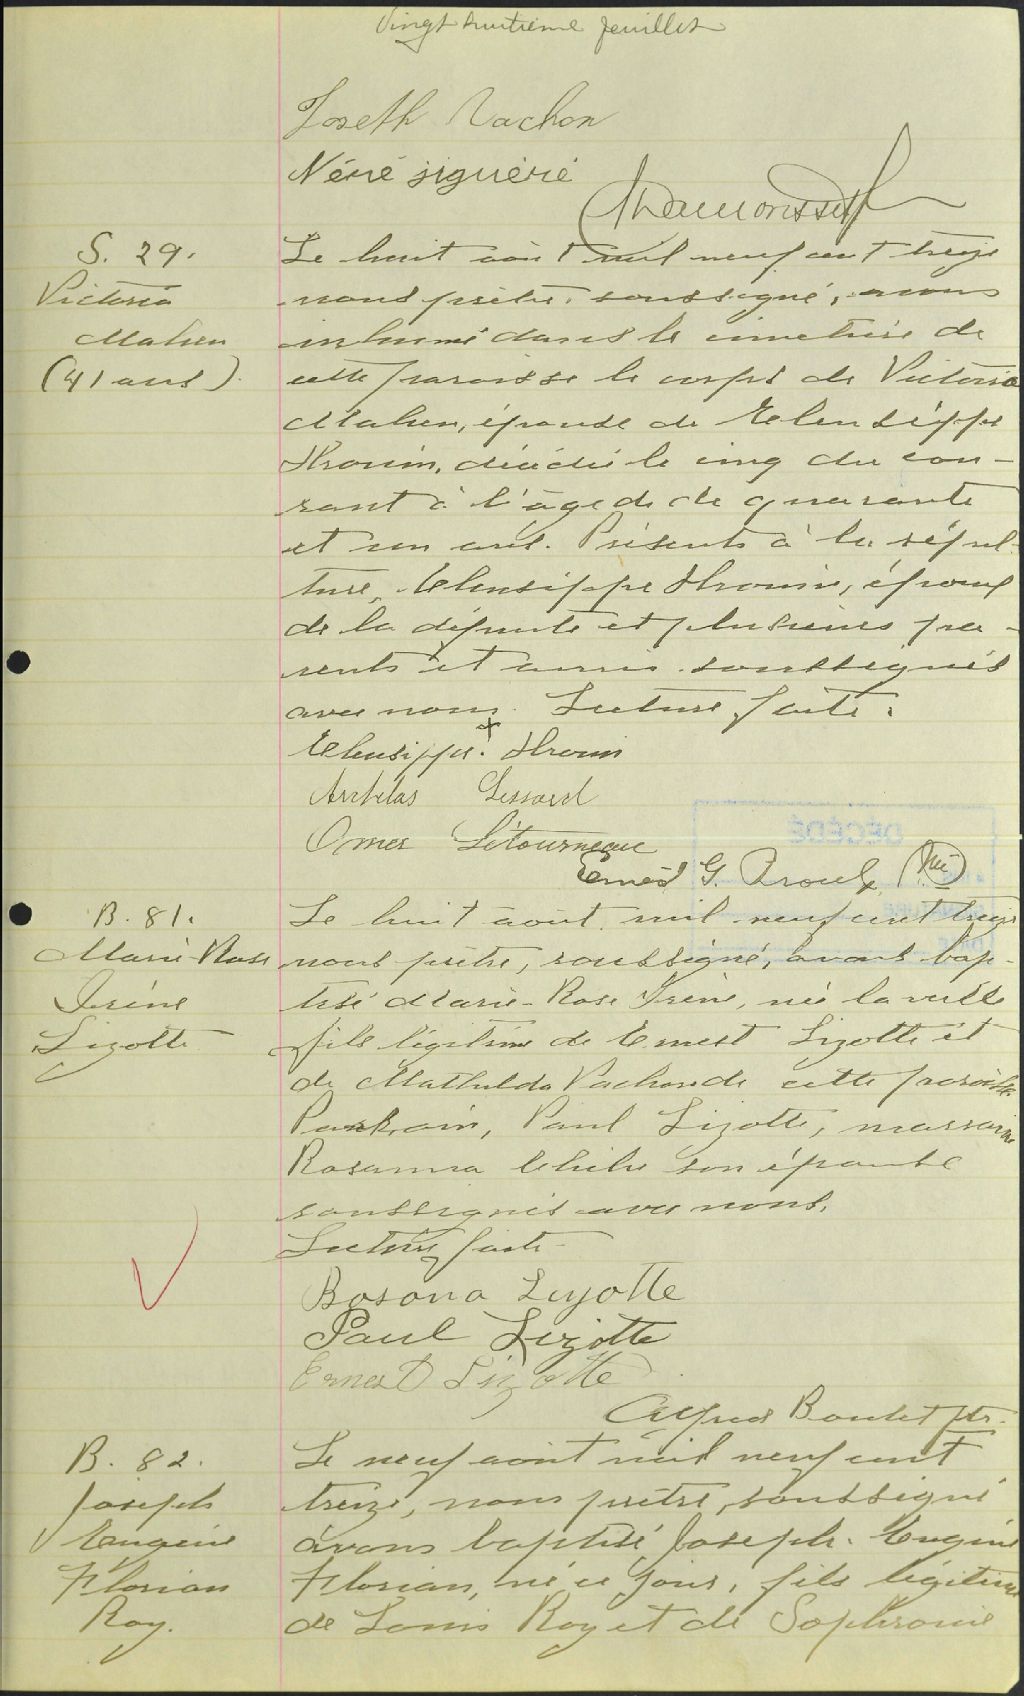 Vingt huitième feuillet
Joseth Vachon
Néré jiguéré
S. 29.
Victoria
Maheu
(41 ans).
Le huit août mil neuf cent treize
nous prêtre, soussigné, avons
inhumé dans le cimetière de
cette paroisse le corps de Victoria
Maheu, épouse de Eleusippe
Drouin, décédée le cinq du cou-
rant à l'âge de de quarante
et un ans. Présents à la sépul-
ture, Eleusippe Drouin, époux
de la défunte et plusieurs pa-
rents et amis soussignés
avec nous. Lecture faite.
Eleusippe Drouin
Archelas Lessard
Omer Létourneau
DÉCÉDÉ
Ernest G. Proulx, Ptre
B. 81.
Marie-Rose
Irène
Lizotte
Le huit août mil-neuf cent treize
nous prêtre, soussigné, avons bap-
tisé Marie-Rose Irène, née la veille
fils légitime de Ernest Lizotte et
de Mathilda Vachon de cette paroisse
Parrain, Paul Lizotte, marraine
Rosanna son épouse
soussignés avec nous.
Lecture faite
Rosana Lizotte
Paul Lizotte
Ernest Lizotte
Alfred Boulet ptr.
B. 82.
Joseph
Eugène
Florian
Roy.
Le neuf août mil neuf cent
treize, nous prêtre, soussigné
avons baptisé, Joseph-Eugène
Florian, né ce jour, fils légitime
de Louis Roy et de Sophronie